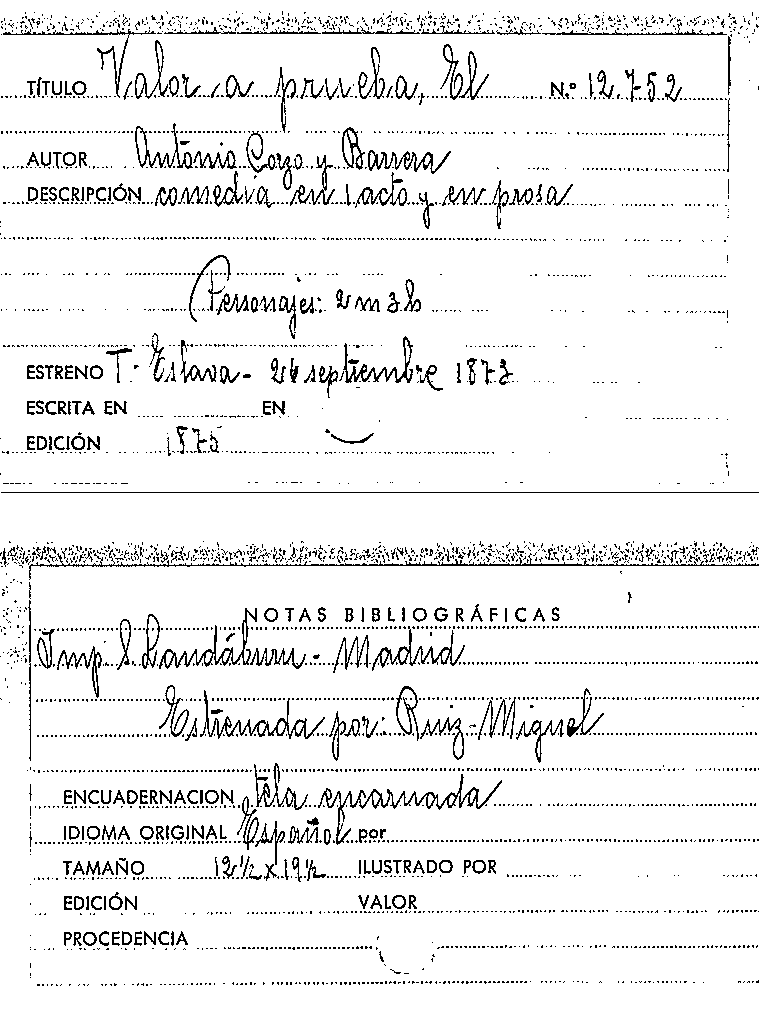 TÍTULO Valor a prueba, El N.º 12.752
AUTOR Antonio Corzo y Barrera
DESCRIPCIÓN comedia en 1 acto y en prosa
Personajes: 2 m 3 h
ESTRENO T. Eslava - 26 septiembre 1873
ESCRITA EN EN
EDICIÓN 1875
NOTAS BIBLIOGRÁFICAS
Imp. S. Landáburu - Madrid
Estrenada por: Ruiz-Miguel
ENCUADERNACION tela encarnada
IDIOMA ORIGINAL Español por
TAMAÑO 12 1/2 x 19 1/2 ILUSTRADO POR
EDICIÓN VALOR
PROCEDENCIA